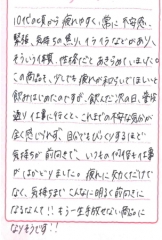 10代の頃から疲れやすく、常に不安感、
緊張、気持ちの焦り、イライラなどがあり、
そういう体質、性格だとあきらめてしまいました。
この商品を、少しでも疲れが和らいでほしいと
飲みはじめたのですが、飲んだ次の日、普段
通り仕事に行くと、これまでの不安な気分が
全く感じられず、自分でもびっくりするほど
気持ちが前向きで、いつもの何倍も仕事
がはかどりました。疲れに欠かせないだけで
なく、気持ちまでこんなに明るく前向きに
なるなんて!!もう一生手放せない商品に
なりそうです!!